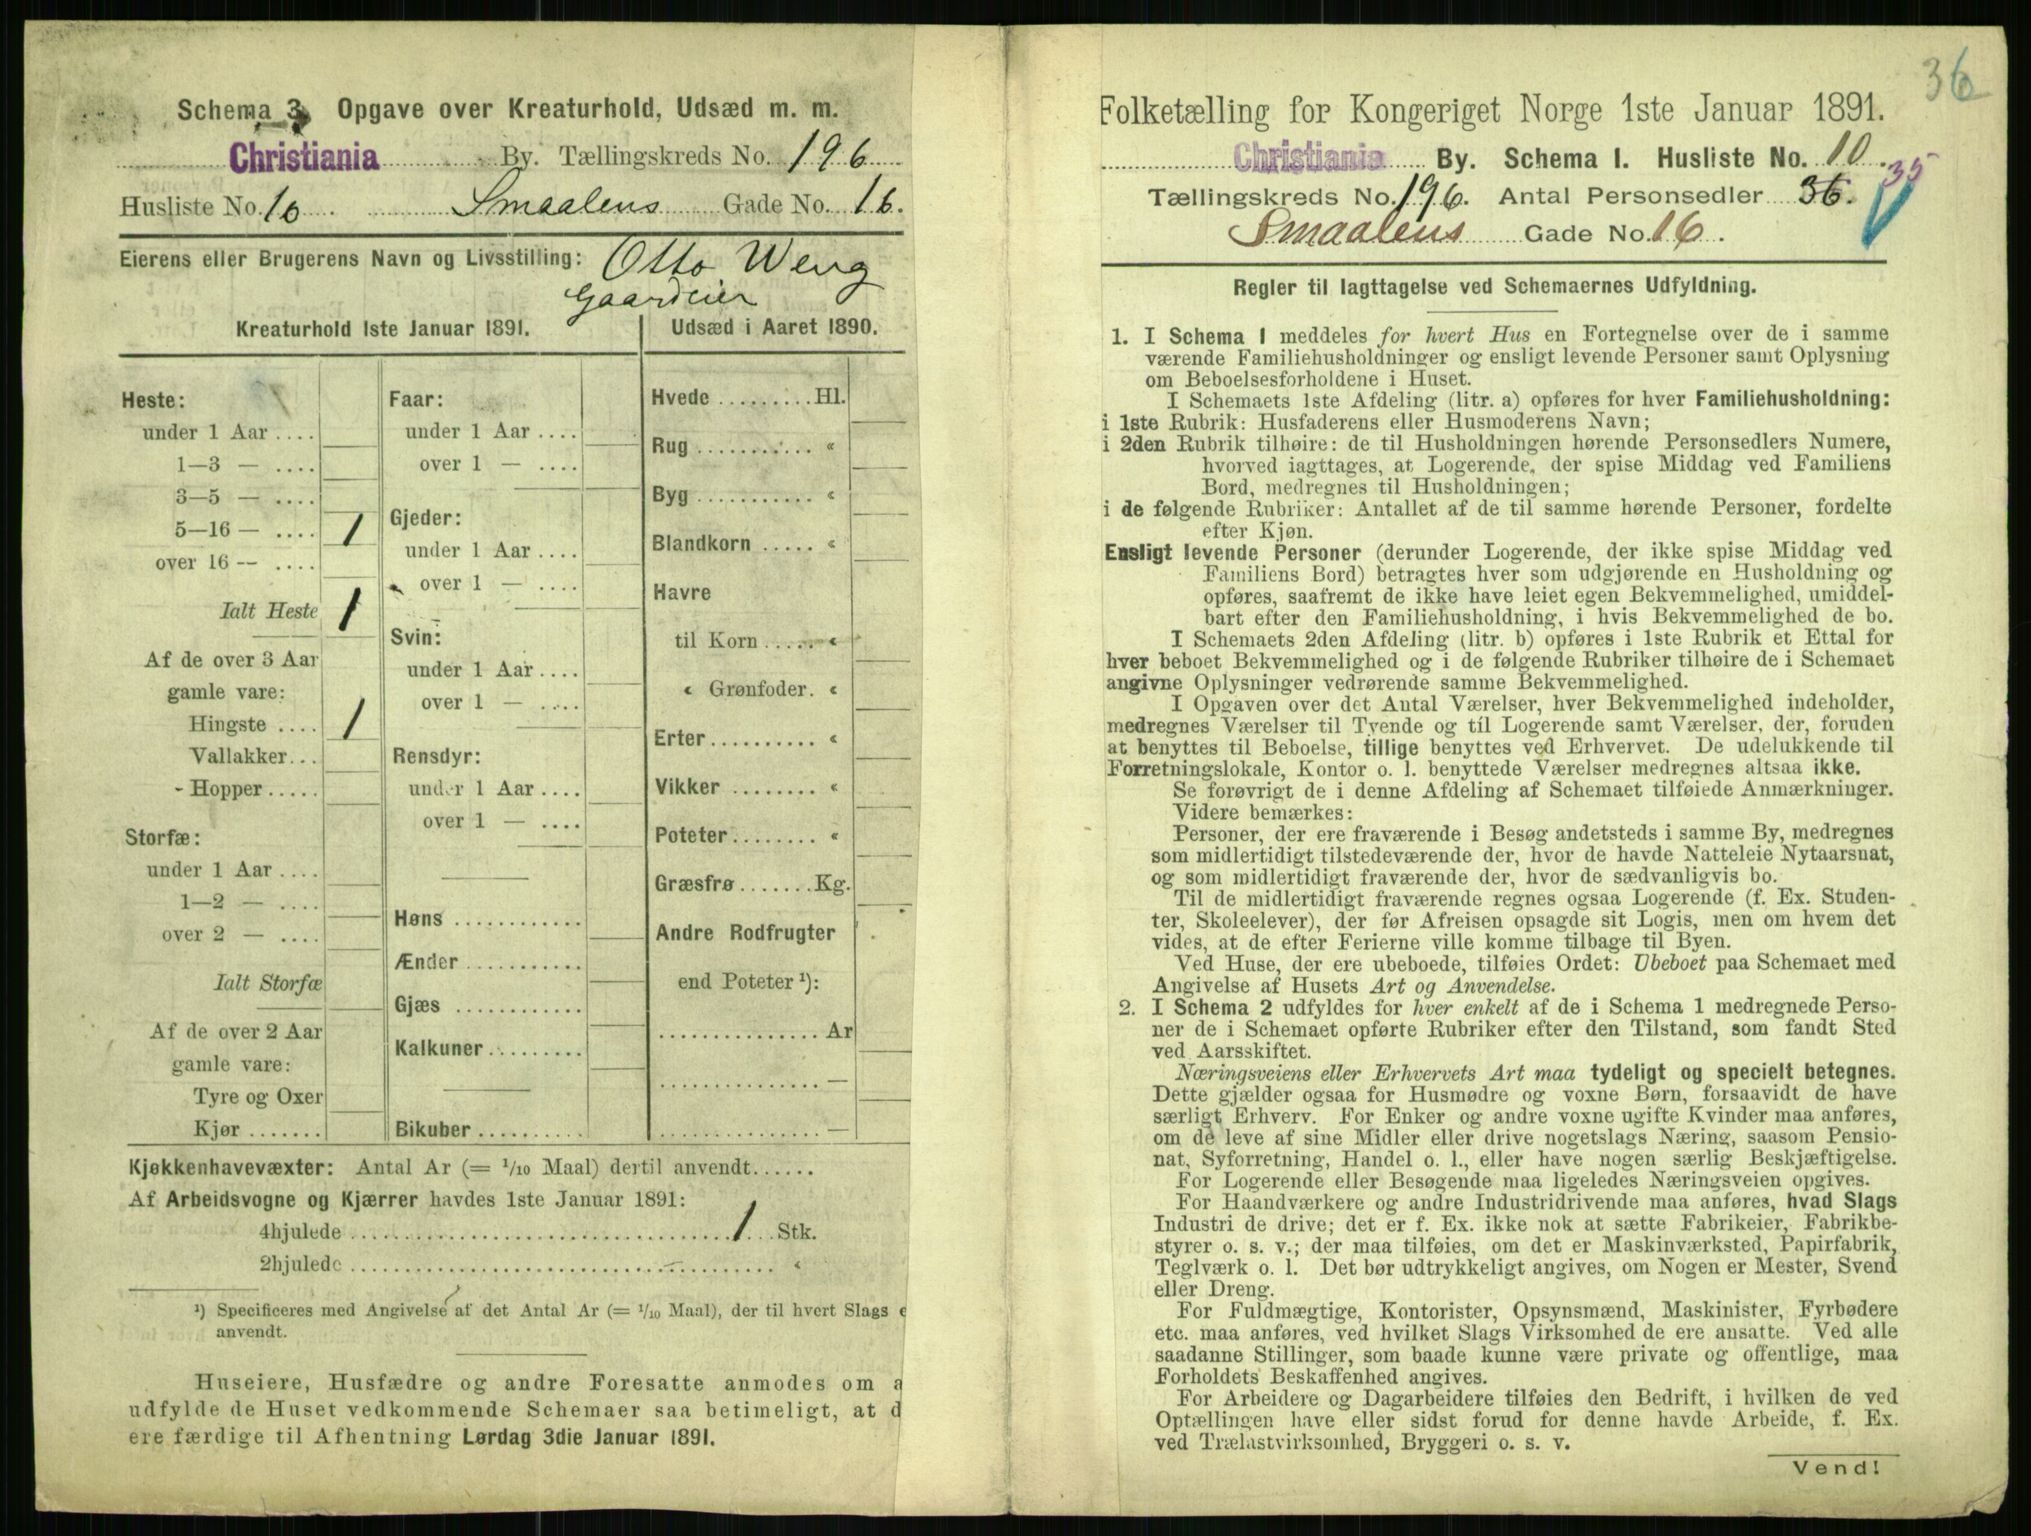 Schema 3. Opgave over Kreaturhold, Udsæd m. m.
Christiania By. Tællingskreds No. 196
Husliste No. 10 Smaalens Gade No. 16.
Eierens eller Brugerens Navn og Livsstilling: Otto Weng
Gaardeier
Kreaturhold 1ste Januar 1891.
Heste:
under 1 Aar ....
1—3 — ....
3—5 — ....
5—16 — .... 1
over 16 — ....
Ialt Heste 1
Af de over 3 Aar
gamle vare:
Hingste .... 1
Vallakker...
Hopper .....
Storfæ:
under 1 Aar ....
1—2 — ....
over 2 — ....
Ialt Storfæ
Af de over 2 Aar
gamle vare:
Tyre og Oxer
Kjør .......
Faar:
under 1 Aar ....
over 1 — ....
Gjeder:
under 1 Aar ....
over 1 — ....
Svin:
under 1 Aar ....
over 1 — ....
Rensdyr:
under 1 Aar ....
over 1 — ....
Høns ............
Ænder ...........
Gjæs ............
Kalkuner .........
Bikuber ..........
Udsæd i Aaret 1890.
Hvede ......... Hl.
Rug ........... «
Byg ........... «
Blandkorn ..... «
Havre
til Korn ..... «
« Grønfoder. «
Erter .......... «
Vikker ........ «
Poteter ........ «
Græsfrø ....... Kg.
Andre Rodfrugter
end Poteter ¹):
............... Ar
............... —
............... —
Kjøkkenhavevæxter: Antal Ar (= 1/10 Maal) dertil anvendt......
Af Arbeidsvogne og Kjærrer havdes 1ste Januar 1891:
4hjulede .......... 1 Stk.
2hjulede .......... «
¹) Specificeres med Angivelse af det Antal Ar (= 1/10 Maal), der til hvert Slags e
anvendt.
Huseiere, Husfædre og andre Foresatte anmodes om a
udfylde de Huset vedkommende Schemaer saa betimeligt, at d
ere færdige til Afhentning Lørdag 3die Januar 1891.
36
Folketælling for Kongeriget Norge 1ste Januar 1891.
Christiania By. Schema 1. Husliste No. 10.
35
Tællingskreds No. 196. Antal Personsedler 36.
Smaalens Gade No. 16.
Regler til Iagttagelse ved Schemaernes Udfyldning.
1. I Schema 1 meddeles for hvert Hus en Fortegnelse over de i samme
værende Familiehusholdninger og ensligt levende Personer samt Oplysning
om Beboelsesforholdene i Huset.
I Schemaets 1ste Afdeling (litr. a) opføres for hver Familiehusholdning:
i 1ste Rubrik: Husfaderens eller Husmoderens Navn;
i 2den Rubrik tilhøire: de til Husholdningen hørende Personsedlers Numere,
hvorved iagttages, at Logerende, der spise Middag ved Familiens
Bord, medregnes til Husholdningen;
i de følgende Rubriker: Antallet af de til samme hørende Personer, fordelte
efter Kjøn.
Ensligt levende Personer (derunder Logerende, der ikke spise Middag ved
Familiens Bord) betragtes hver som udgjørende en Husholdning og
opføres, saafremt de ikke have leiet egen Bekvemmelighed, umiddel-
bart efter den Familiehusholdning, i hvis Bekvemmelighed de bo.
I Schemaets 2den Afdeling (litr. b) opføres i 1ste Rubrik et Ettal for
hver beboet Bekvemmelighed og i de følgende Rubriker tilhøire de i Schemaet
angivne Oplysninger vedrørende samme Bekvemmelighed.
I Opgaven over det Antal Værelser, hver Bekvemmelighed indeholder,
medregnes Værelser til Tyende og til Logerende samt Værelser, der, foruden
at benyttes til Beboelse, tillige benyttes ved Erhvervet. De udelukkende til
Forretningslokale, Kontor o. l. benyttede Værelser medregnes altsaa ikke.
Se forøvrigt de i denne Afdeling af Schemaet tilføiede Anmærkninger.
Videre bemærkes:
Personer, der ere fraværende i Besøg andetsteds i samme By, medregnes
som midlertidigt tilstedeværende der, hvor de havde Natteleie Nytaarsnat,
og som midlertidigt fraværende der, hvor de sædvanligvis bo.
Til de midlertidigt fraværende regnes ogsaa Logerende (f. Ex. Studen-
ter, Skoleelever), der før Afreisen opsagde sit Logis, men om hvem det
vides, at de efter Ferierne ville komme tilbage til Byen.
Ved Huse, der ere ubeboede, tilføies Ordet: Ubeboet paa Schemaet med
Angivelse af Husets Art og Anvendelse.
2. I Schema 2 udfyldes for hver enkelt af de i Schema 1 medregnede Perso-
ner de i Schemaet opførte Rubriker efter den Tilstand, som fandt Sted
ved Aarsskiftet.
Næringsveiens eller Erhvervets Art maa tydeligt og specielt betegnes.
Dette gjælder ogsaa for Husmødre og voxne Børn, forsaavidt de have
særligt Erhverv. For Enker og andre voxne ugifte Kvinder maa anføres,
om de leve af sine Midler eller drive nogetslags Næring, saasom Pensio-
nat, Syforretning, Handel o. l., eller have nogen særlig Beskjæftigelse.
For Logerende eller Besøgende maa ligeledes Næringsveien opgives.
For Haandværkere og andre Industridrivende maa anføres, hvad Slags
Industri de drive; det er f. Ex. ikke nok at sætte Fabrikeier, Fabrikbe-
styrer o. s. v.; der maa tilføies, om det er Maskinværksted, Papirfabrik,
Teglværk o. l. Det bør udtrykkeligt angives, om Nogen er Mester, Svend
eller Dreng.
For Fuldmægtige, Kontorister, Opsynsmænd, Maskinister, Fyrbødere
etc. maa anføres, ved hvilket Slags Virksomhed de ere ansatte. Ved alle
saadanne Stillinger, som baade kunne være private og offentlige, maa
Forholdets Beskaffenhed angives.
For Arbeidere og Dagarbeidere tilføies den Bedrift, i hvilken de ved
Optællingen have eller sidst forud for denne havde Arbeide, f. Ex.
ved Trælastvirksomhed, Bryggeri o. s. v.
Vend!